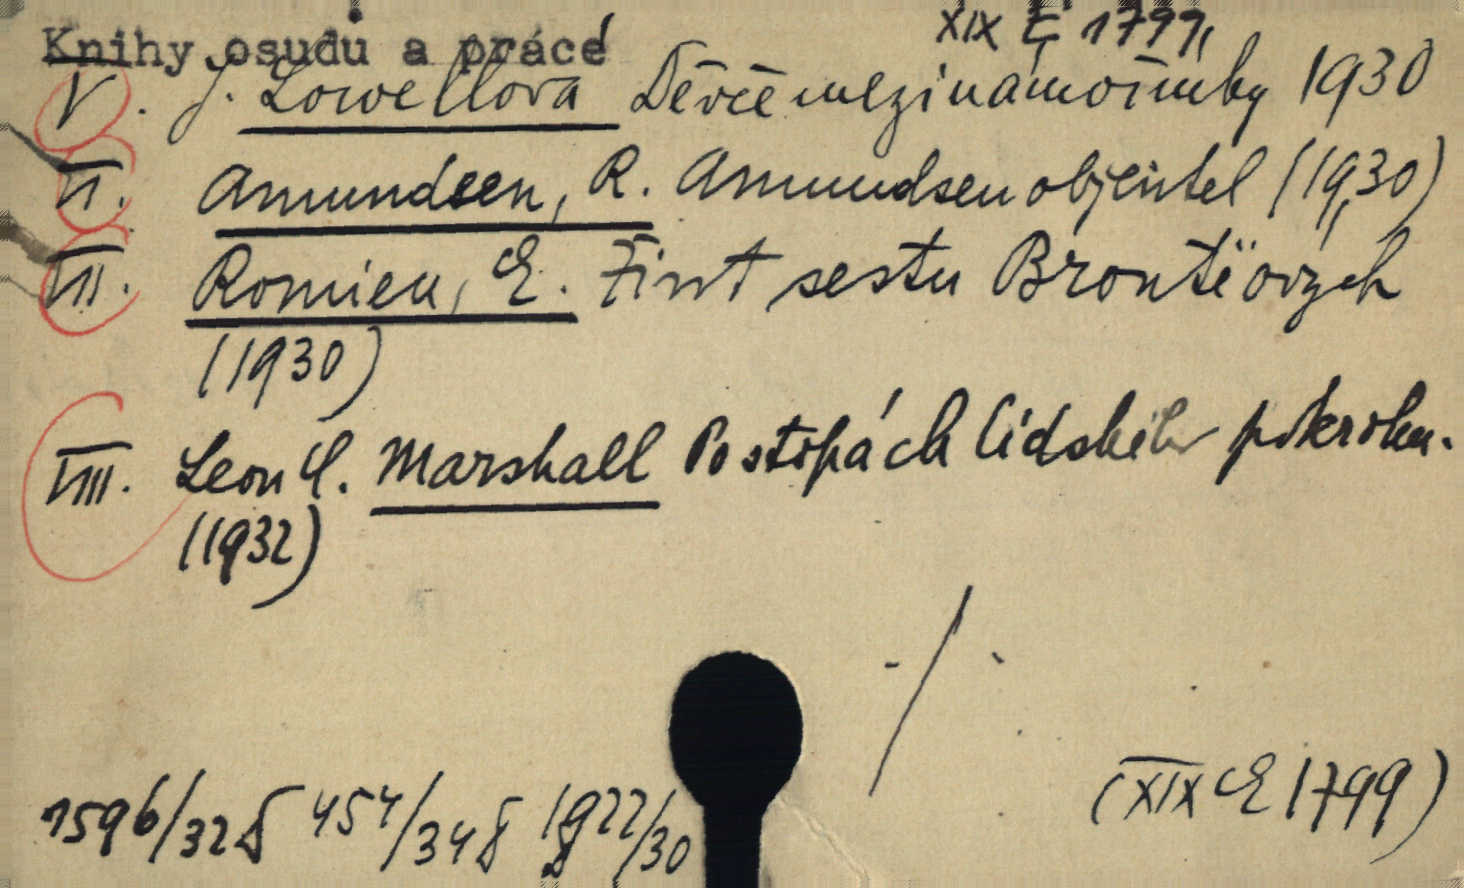 XIX E 1799,
Knihy osudu a práce
V. J. Lowellova Děvče mezi námořníky 1930
VI. Amundsen, R. Amundsen objevitel (1930)
VII. Romieu, E. Život sester Brontëových
(1930)
VIII. Leon C. Marshall Po stopách lidského pokroku.
(1932)
./.
1596/32 454/34 1922/30
(XIX E 1799)